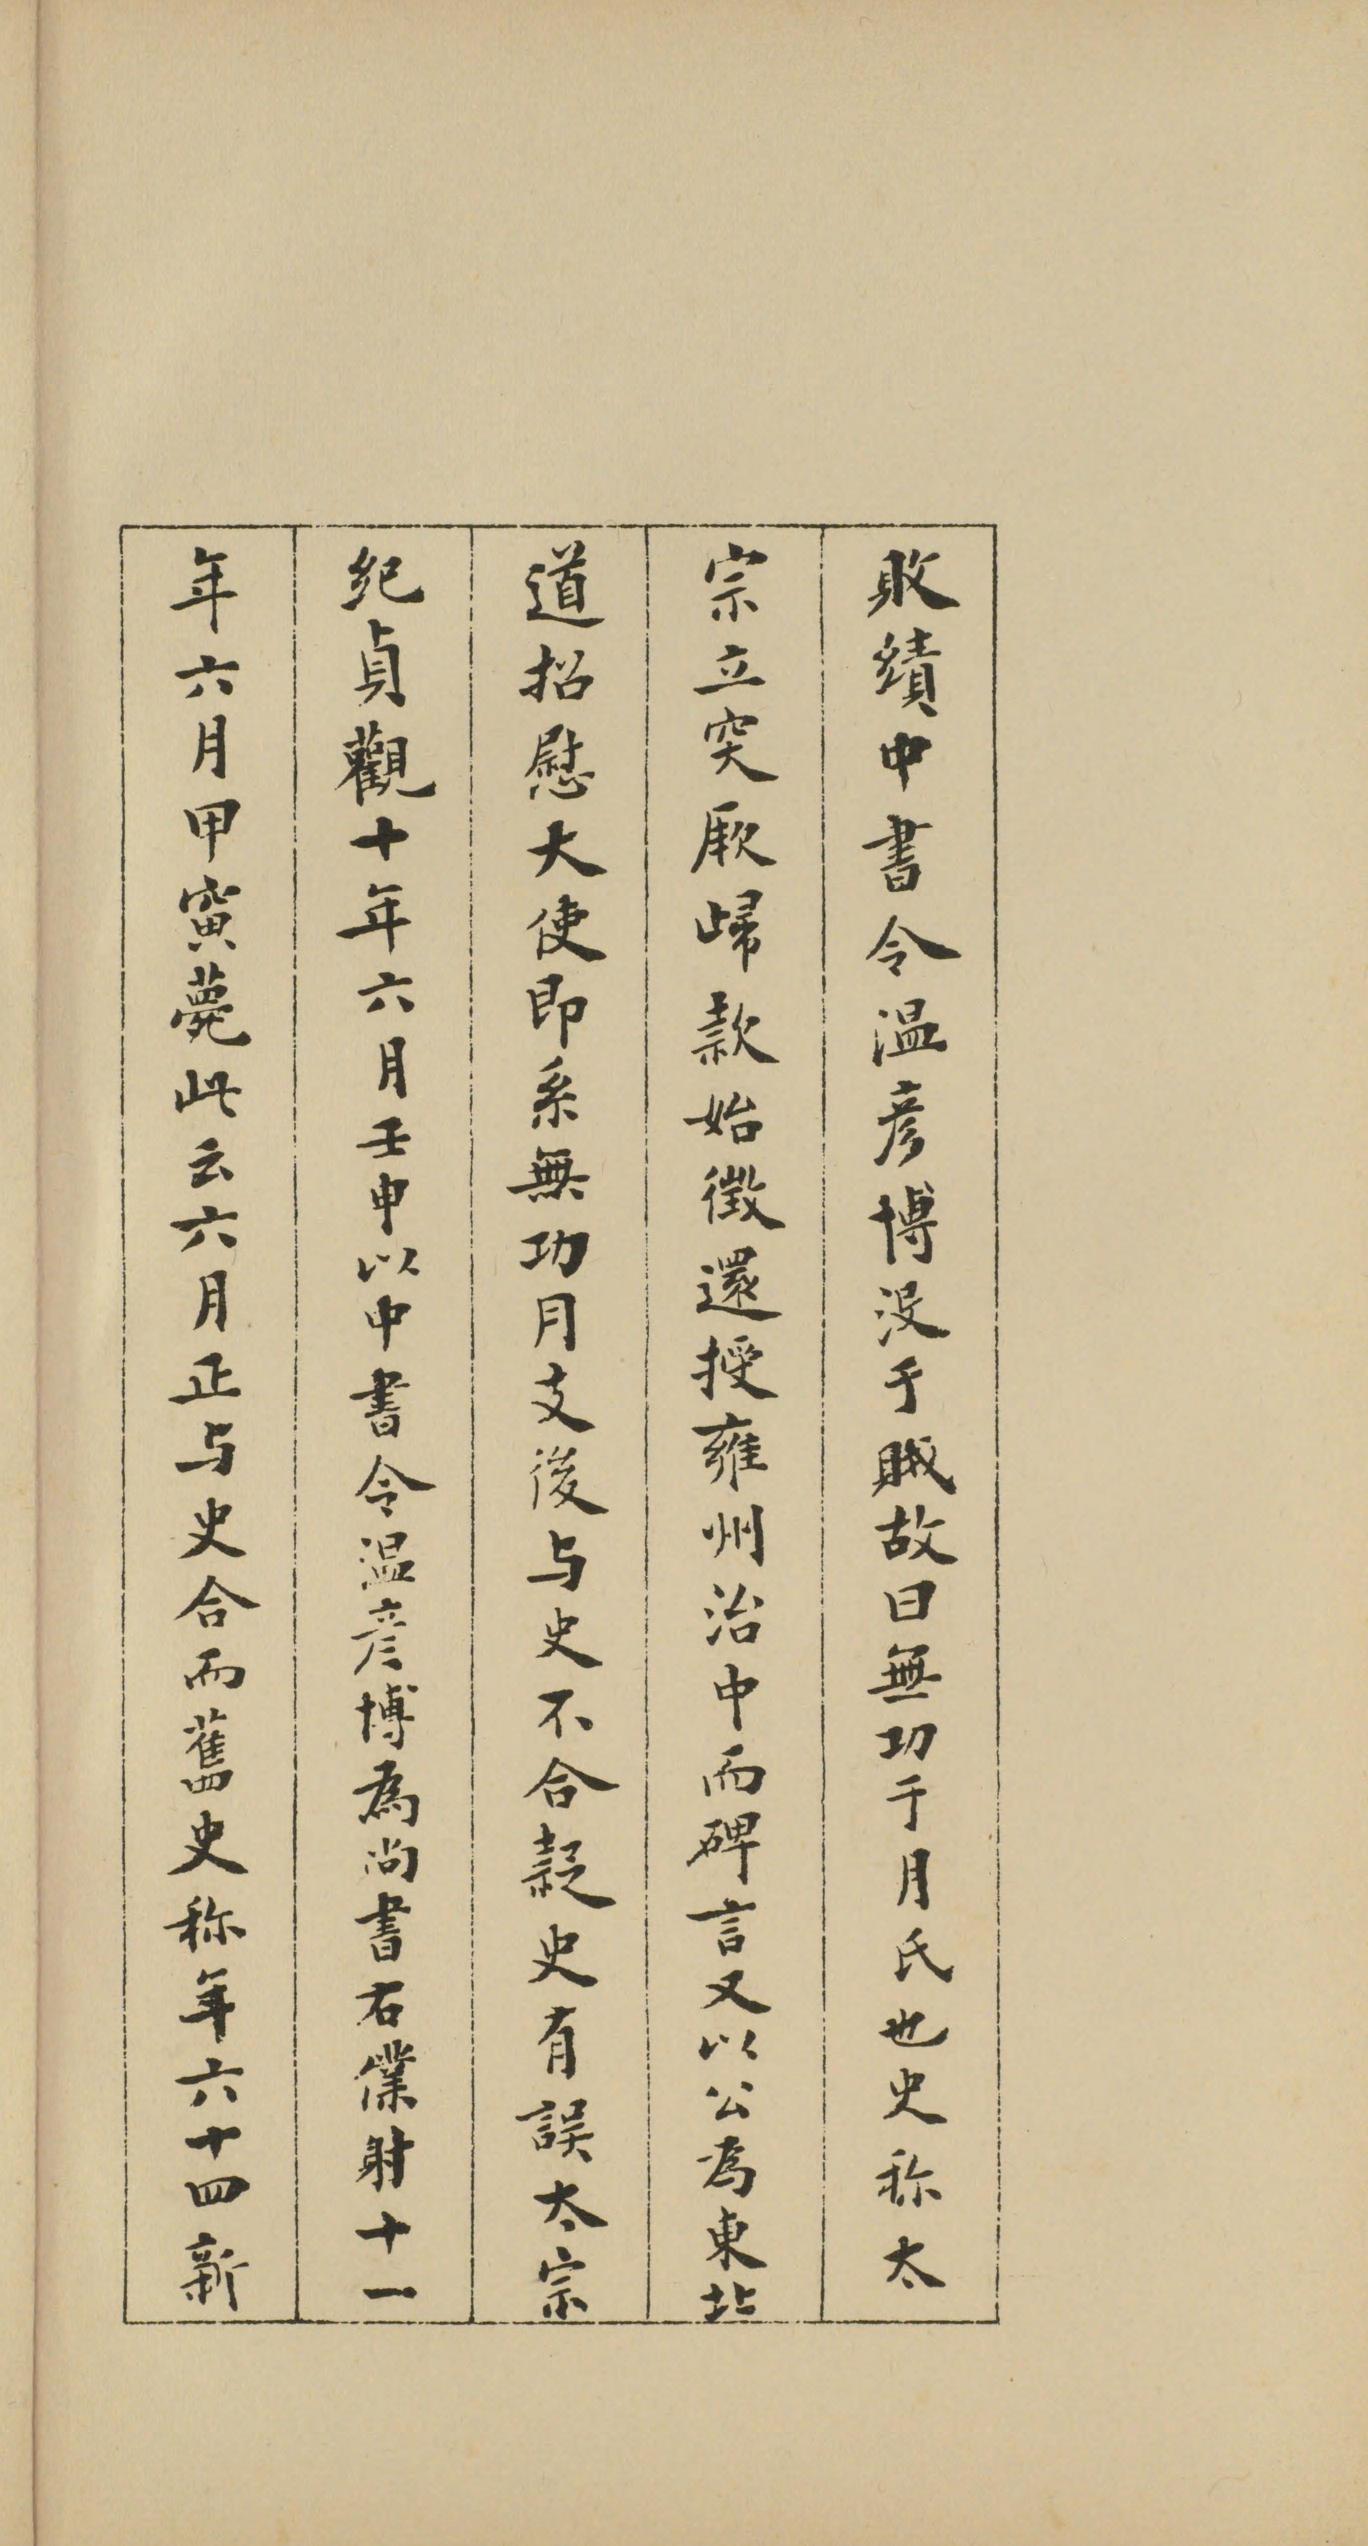 敗績中書令温彦博没于賊故曰無功于月氏也史称太
宗立突厥歸款始徵還授雍州治中而碑言又以公為東北
道招慰大使即系無功月支後与史不合疑史有誤太宗
紀貞觀十年六月壬申以中書令温彦博為尚書右僕射十一
年六月甲寅薨此云六月正与史合而舊史称年六十四新